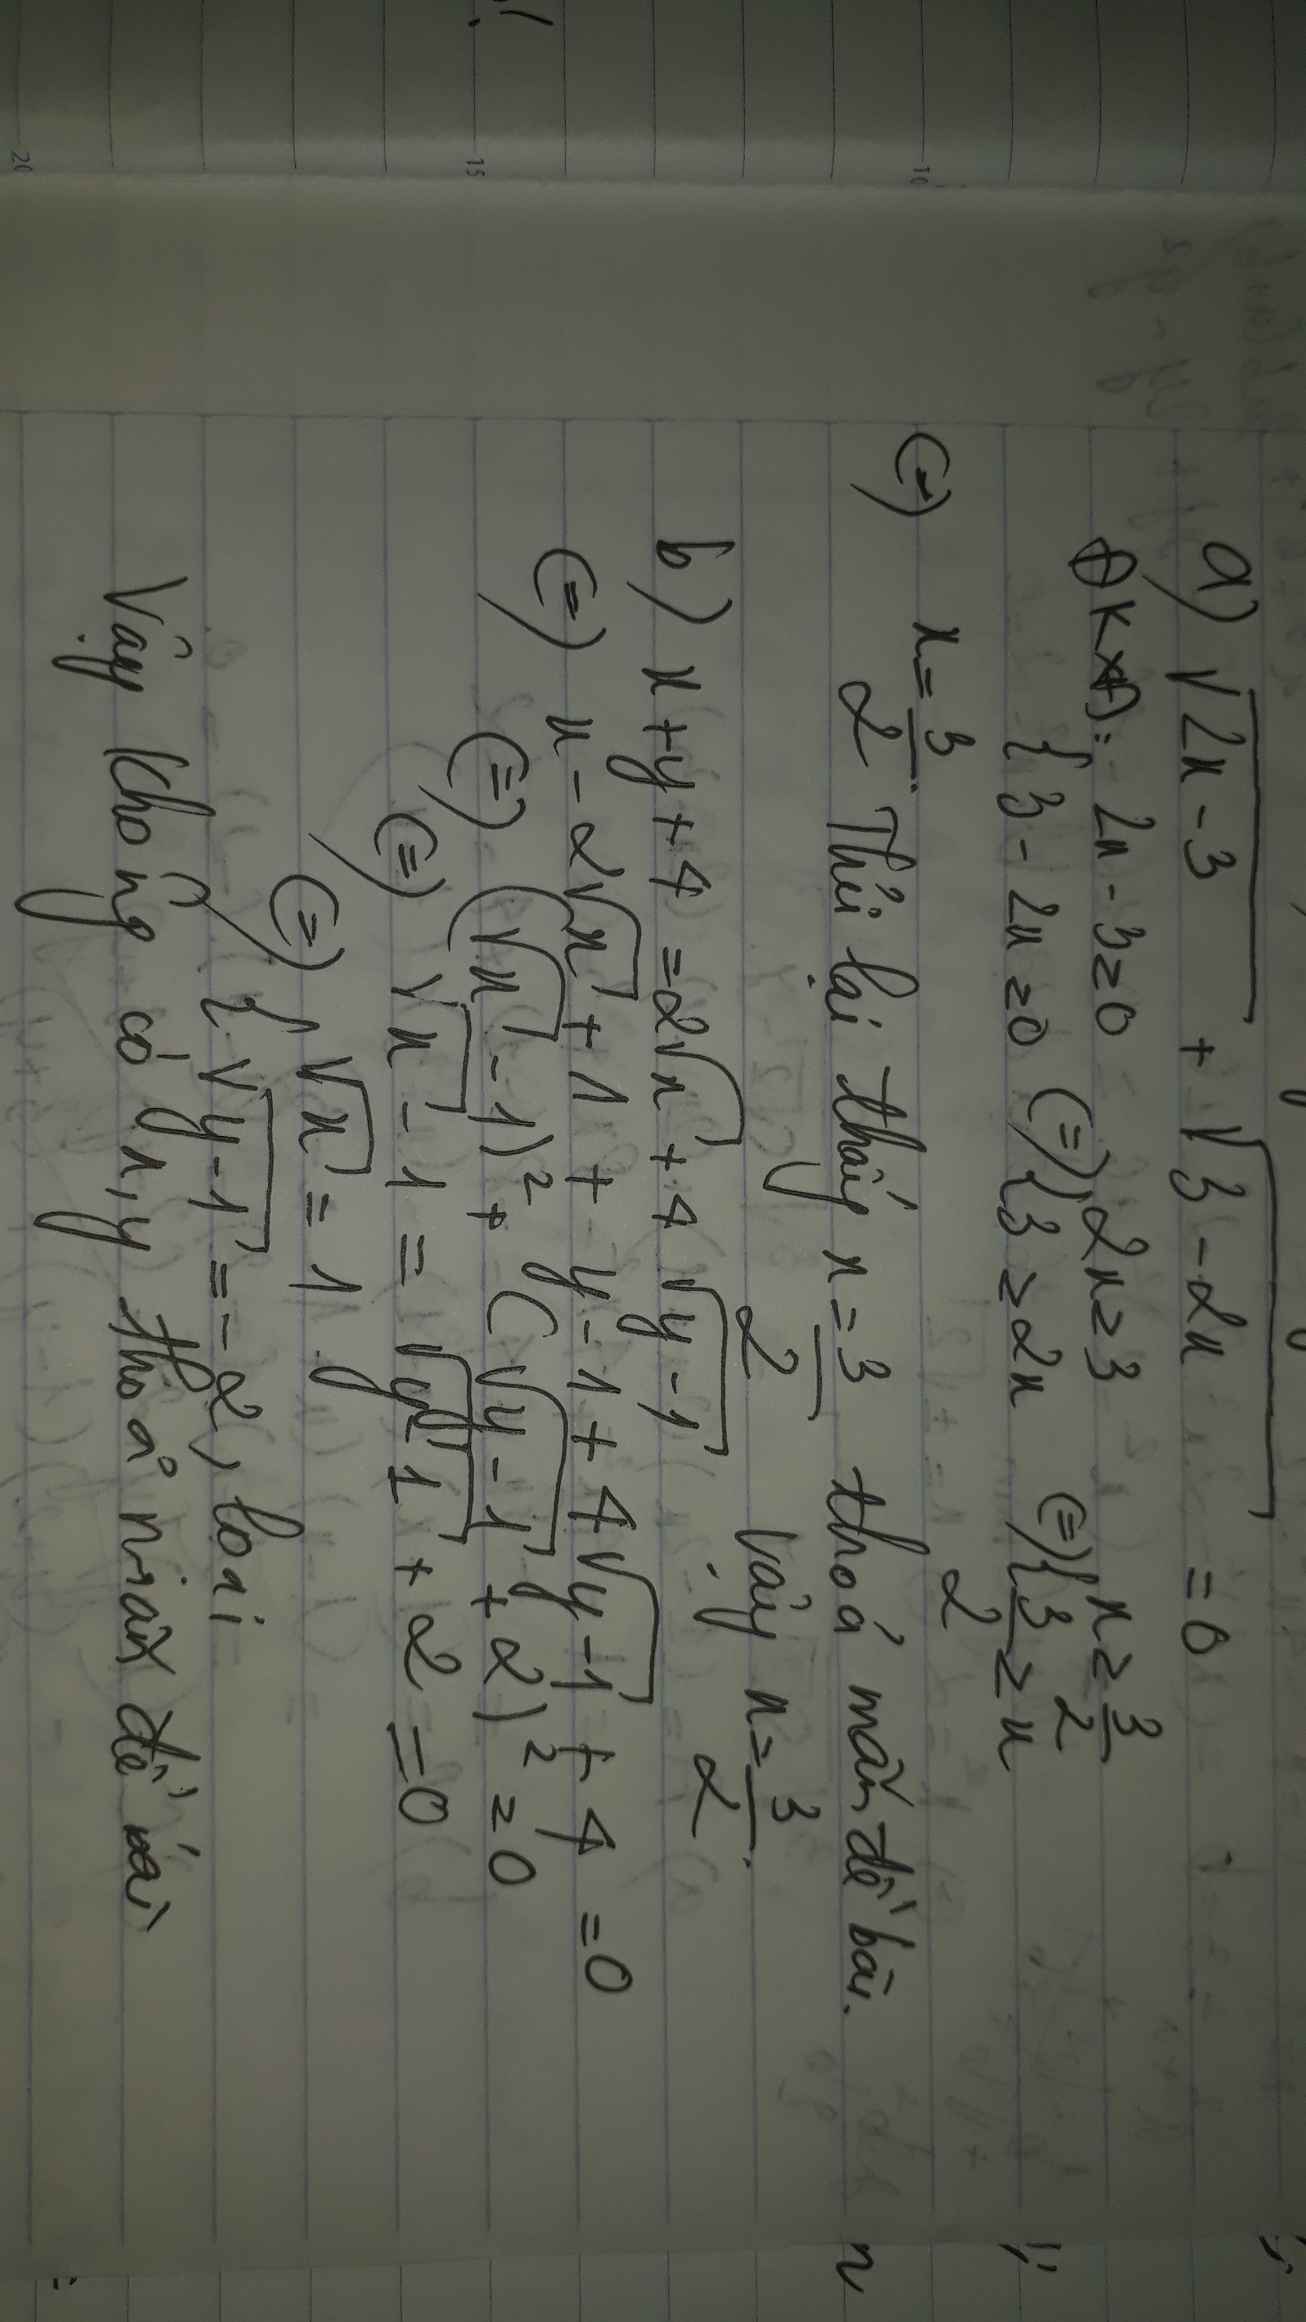 a) √2x-3 + √3-2x = 0
ĐKXĐ: 2x-3≥0 2x≥3 x≥3/2
{3-2x≥0 (=) {3≥2x (=) {3/2≥x
(=) x=3/2. Thử lại thấy x=3/2 thoả mãn đề bài.
Vậy x=3/2.
b) x+y+4=2√x+4√y-1
(=) x-2√x+1+y-1+4√y-1+4=0
(=) (√x-1)²+(√y-1+2)²=0
(=) √x-1=√y-1+2=0
(=) {√x=1
√y-1=-2, loại
Vậy không có x,y thoả mãn đề bài